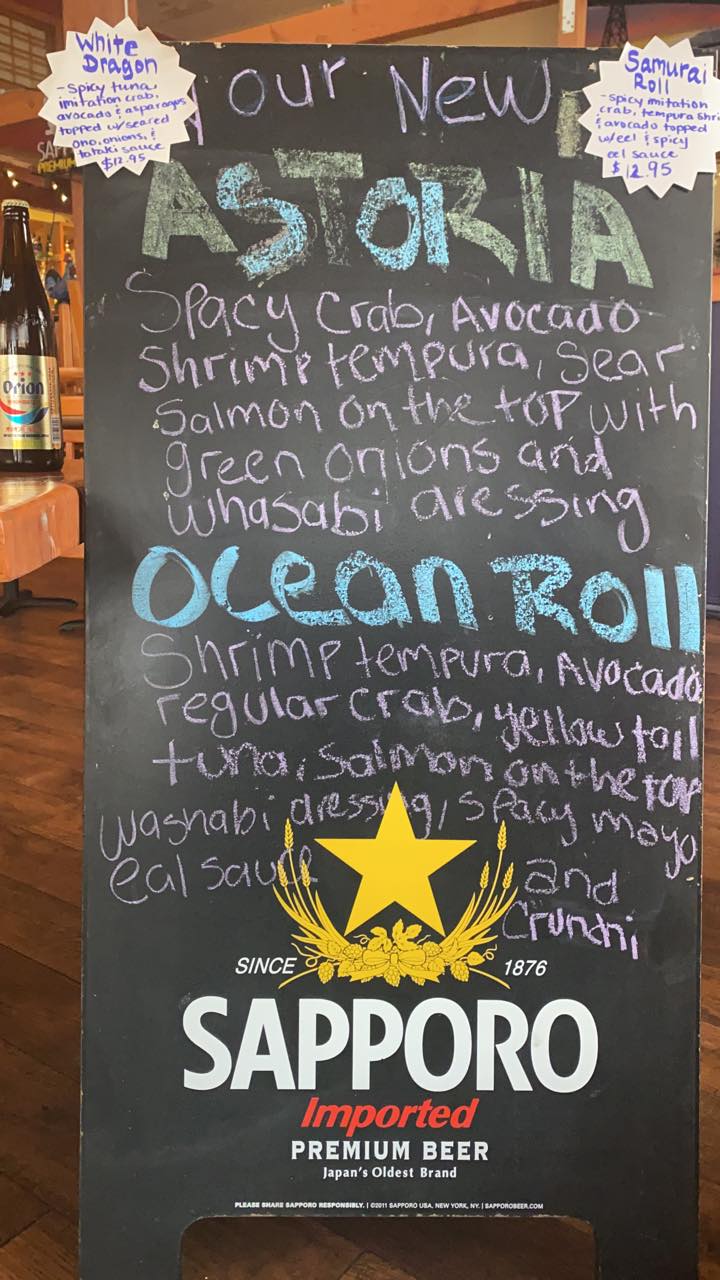 White
Dragon
- Spicy tuna,
imitation crab,
avocado & asparagus
topped w/seared
ono, onions, &
tataki sauce
$12.95
Samurai
Roll
- Spicy imitation
crab, tempura shri
& avocado topped
w/eel & spicy
eel sauce
$12.95
our New
ASTORIA
Spacy crab, Avocado
Shrimp tempura, Sear
Salmon on the top with
green onions and
whasabi dressing
Ocean Roll
Shrimp tempura, Avocado
regular crab, yellow tail
tuna, salmon on the top
washabi dressing, spacy mayo
eal sauce and
crunchi
SINCE 1876
SAPPORO
Imported
PREMIUM BEER
Japan's Oldest Brand
PLEASE SHARE SAPPORO RESPONSIBLY. | ©2011 SAPPORO USA, NEW YORK, NY. | SAPPOROBEER.COM
Orion